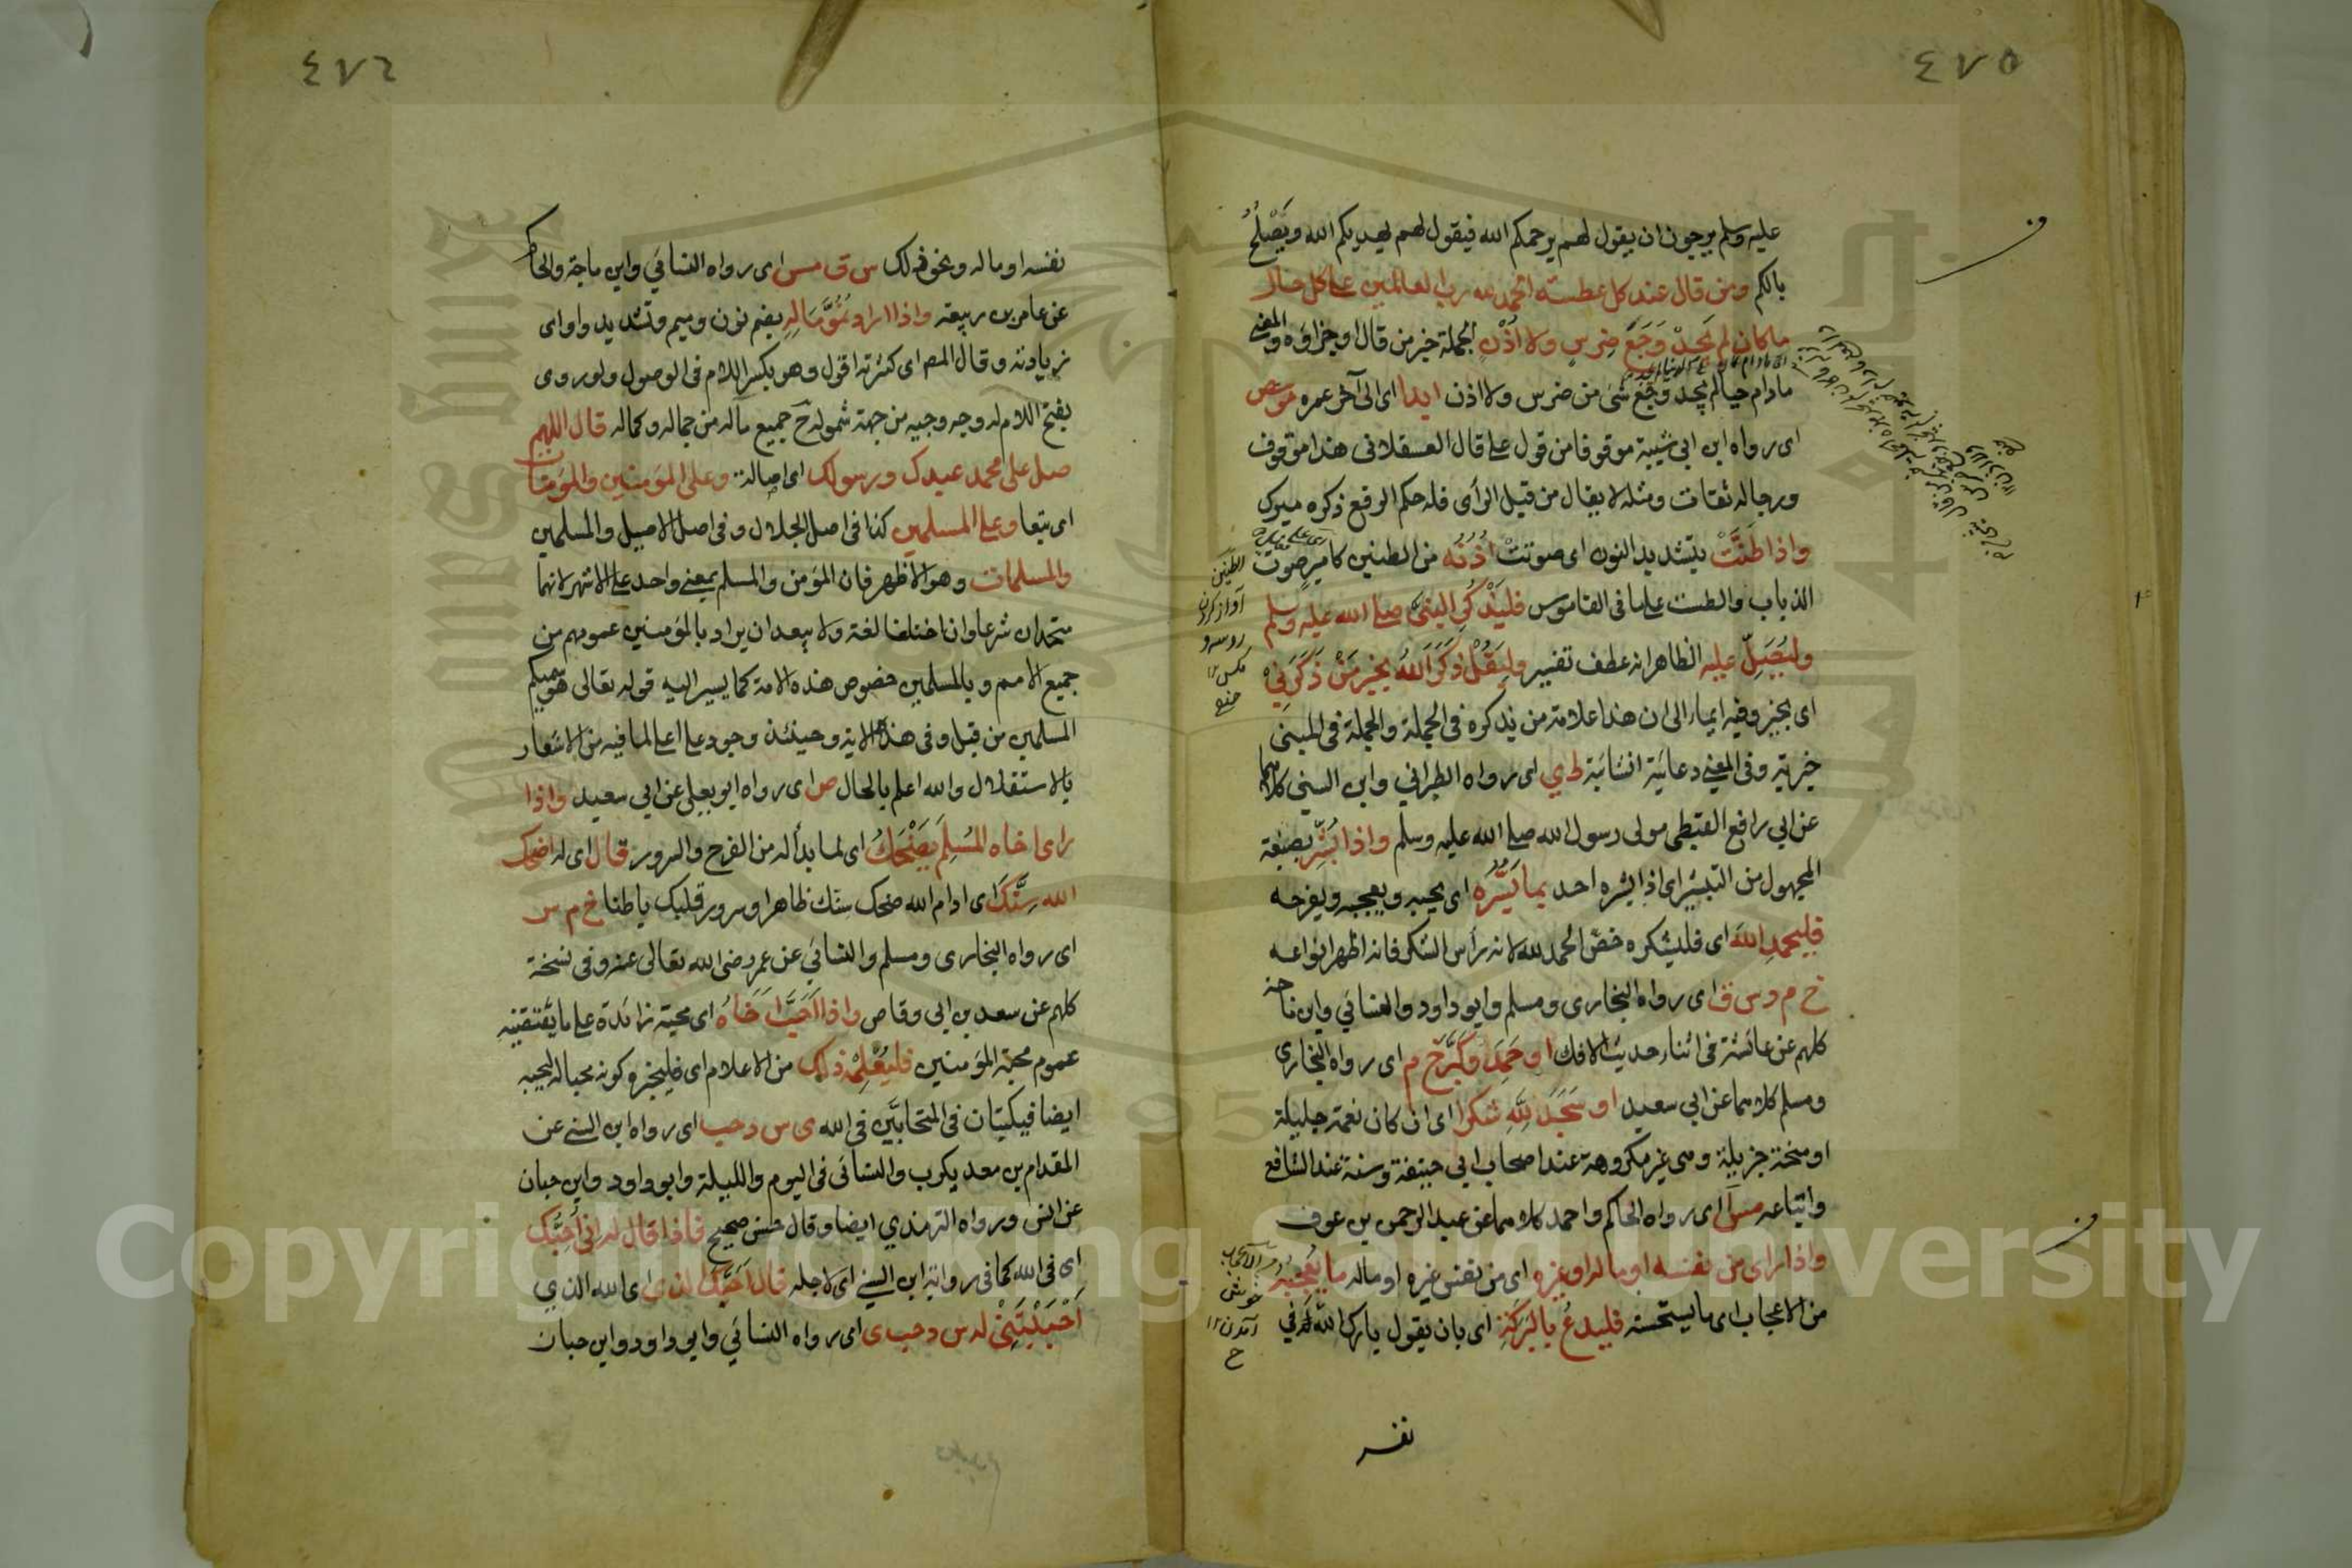 ٤٧٥
عليه وسلم يرجون ان يقول لهم يرحمكم الله فيقول لهم يهديكم الله ويصلح
بالكم ومن قال عند كل عطسة الحمد لله رب العالمين على كل حال
ما كان لم يجد وجع ضرس ولا اذن الجملة خبر من قال او جزاؤه والمعنى
مادام حيا لم يجد وجع شئ من ضرس ولا اذن ابدا اى الى آخر عمره مو مص
اى رواه ابن ابى شيبة موقوفا من قول على قال العسقلانى هذا موقوف
ورجاله ثقات ومثله لا يقال من قبل الرأى فله حكم الرفع ذكره ميرك
واذا طنت بتشديد النون اى صوتت اذنه من الطنين كامير صوت
الذباب والطست على ما فى القاموس فليذكر النبى صلى الله عليه وسلم
وليصل عليه الظاهر انه عطف تفسير وليقل ذكر الله بخير من ذكرنى
اى بخير وفيه ايماء الى ان هذا علامة من يذكره فى الجملة والجملة فى المبنى
خبرية وفى المعنى دعائية انشائية ط ي اى رواه الطبرانى وابن السنى كلاهما
عن ابى رافع القبطى مولى رسول الله صلى الله عليه وسلم واذا بشر بصيغة
المجهول من التبشير اى اذا بشره احد بما يسره اى يحبه ويعجبه ويفرحه
فليحمد الله اى فليشكره خص الحمد لله لانه رأس الشكر فانه اظهر انواعه
خ م د س ق اى رواه البخارى ومسلم وابو داود والنسائي وابن ماجة
كلهم عن عائشة فى اثناء حديث الافك او حمد وكبر خ م اى رواه البخارى
ومسلم كلاهما عن ابى سعيد او سجد لله شكرا اى ان كان نعمة جليلة
او منحة جزيلة وهى غير مكروهة عند اصحاب ابى حنيفة وسنة عند الشافعى
واتباعه مس أ اى رواه الحاكم واحمد كلاهما عن عبد الرحمن بن عوف
واذا راى من نفسه او ماله او غيره اى من نفس غيره او ماله ما يعجبه
من الاعجاب اى ما يستحسنه فليدع بالبركة اى بان يقول بارك الله لى فى
نفسه
الطنين
آواز كردن
٤٧٦
نفسه او ماله ونحو ذلك س ق مس اى رواه النسائي وابن ماجة والحاكم
عن عامر بن ربيعة واذا اراد نمو ماله بضم نون وميم وتشديد واو اى
زيادته وقال المص اى كثرته اقول وهو بكسر اللام فى الاصول ولو روى
بفتح اللام له وجه وجيه من جهة شموله ح جميع ماله من جماله وكماله قال اللهم
صل على محمد عبدك ورسولك اى اصالة وعلى المؤمنين والمؤمنات
اى تبعا وعلى المسلمين كذا فى اصل الجلال وفى اصل الاصيل والمسلمين
والمسلمات وهو الاظهر فان المؤمن والمسلم بمعنى واحد على الاشهر لانهما
متحدان شرعا وان اختلفا لغة ولا يبعد ان يراد بالمؤمنين عمومهم من
جميع الامم وبالمسلمين خصوص هذه الامة كما يسير اليه قوله تعالى هو سميكم
المسلمين من قبل وفى هذا الاية وحينئذ وجود على اعلى لما فيه من الاشعار
بالاستقلال والله اعلم بالحال ص اى رواه ابو يعلى عن ابي سعيد واذا
راى اخاه المسلم يضحك اى لما بدأ له من الفرح والسرور قال اى له اضحك
الله سنك اى ادام الله ضحك سنك ظاهرا وسرور قلبك باطنا خ م س
اى رواه البخارى ومسلم والنسائي عن عمر رضى الله تعالى عنه وفى نسخة
كلهم عن سعد بن ابى وقاص واذا احب اخاه اى محبة زائدة على ما يقتضيه
عموم محبة المؤمنين فليعلمه ذلك من الاعلام اى فليخبره كونه محبا له ليحبه
ايضا فيكتبان فى المتحابين فى الله ى س د حب اى رواه ابن السنى عن
المقدام بن معد يكرب والنسائى فى اليوم والليلة وابو داود وابن حبان
عن انس ورواه الترمذي ايضا وقال حسن صحيح فاذا قال له انى احبك
اى فى الله كما فى رواية ابن السنى اى لاجله قال احبك الذى اى الله الذي
احببتنى له س د حب ى اى رواه النسائي وابو داود وابن حبان
Copyright © King Saud University
1957